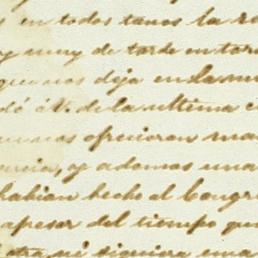 en todos tanos la re
y muy de tarde en tar
que nos deja en la m
dó á V. de la ultima c
nos ofrecieran ma
ncia, y ademas una
habian hecho al Congr
apesar del tiempo qu
otra ni siquiera una